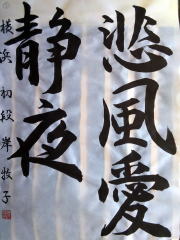 悠風愛
静夜
横浜 初段 岸牧子